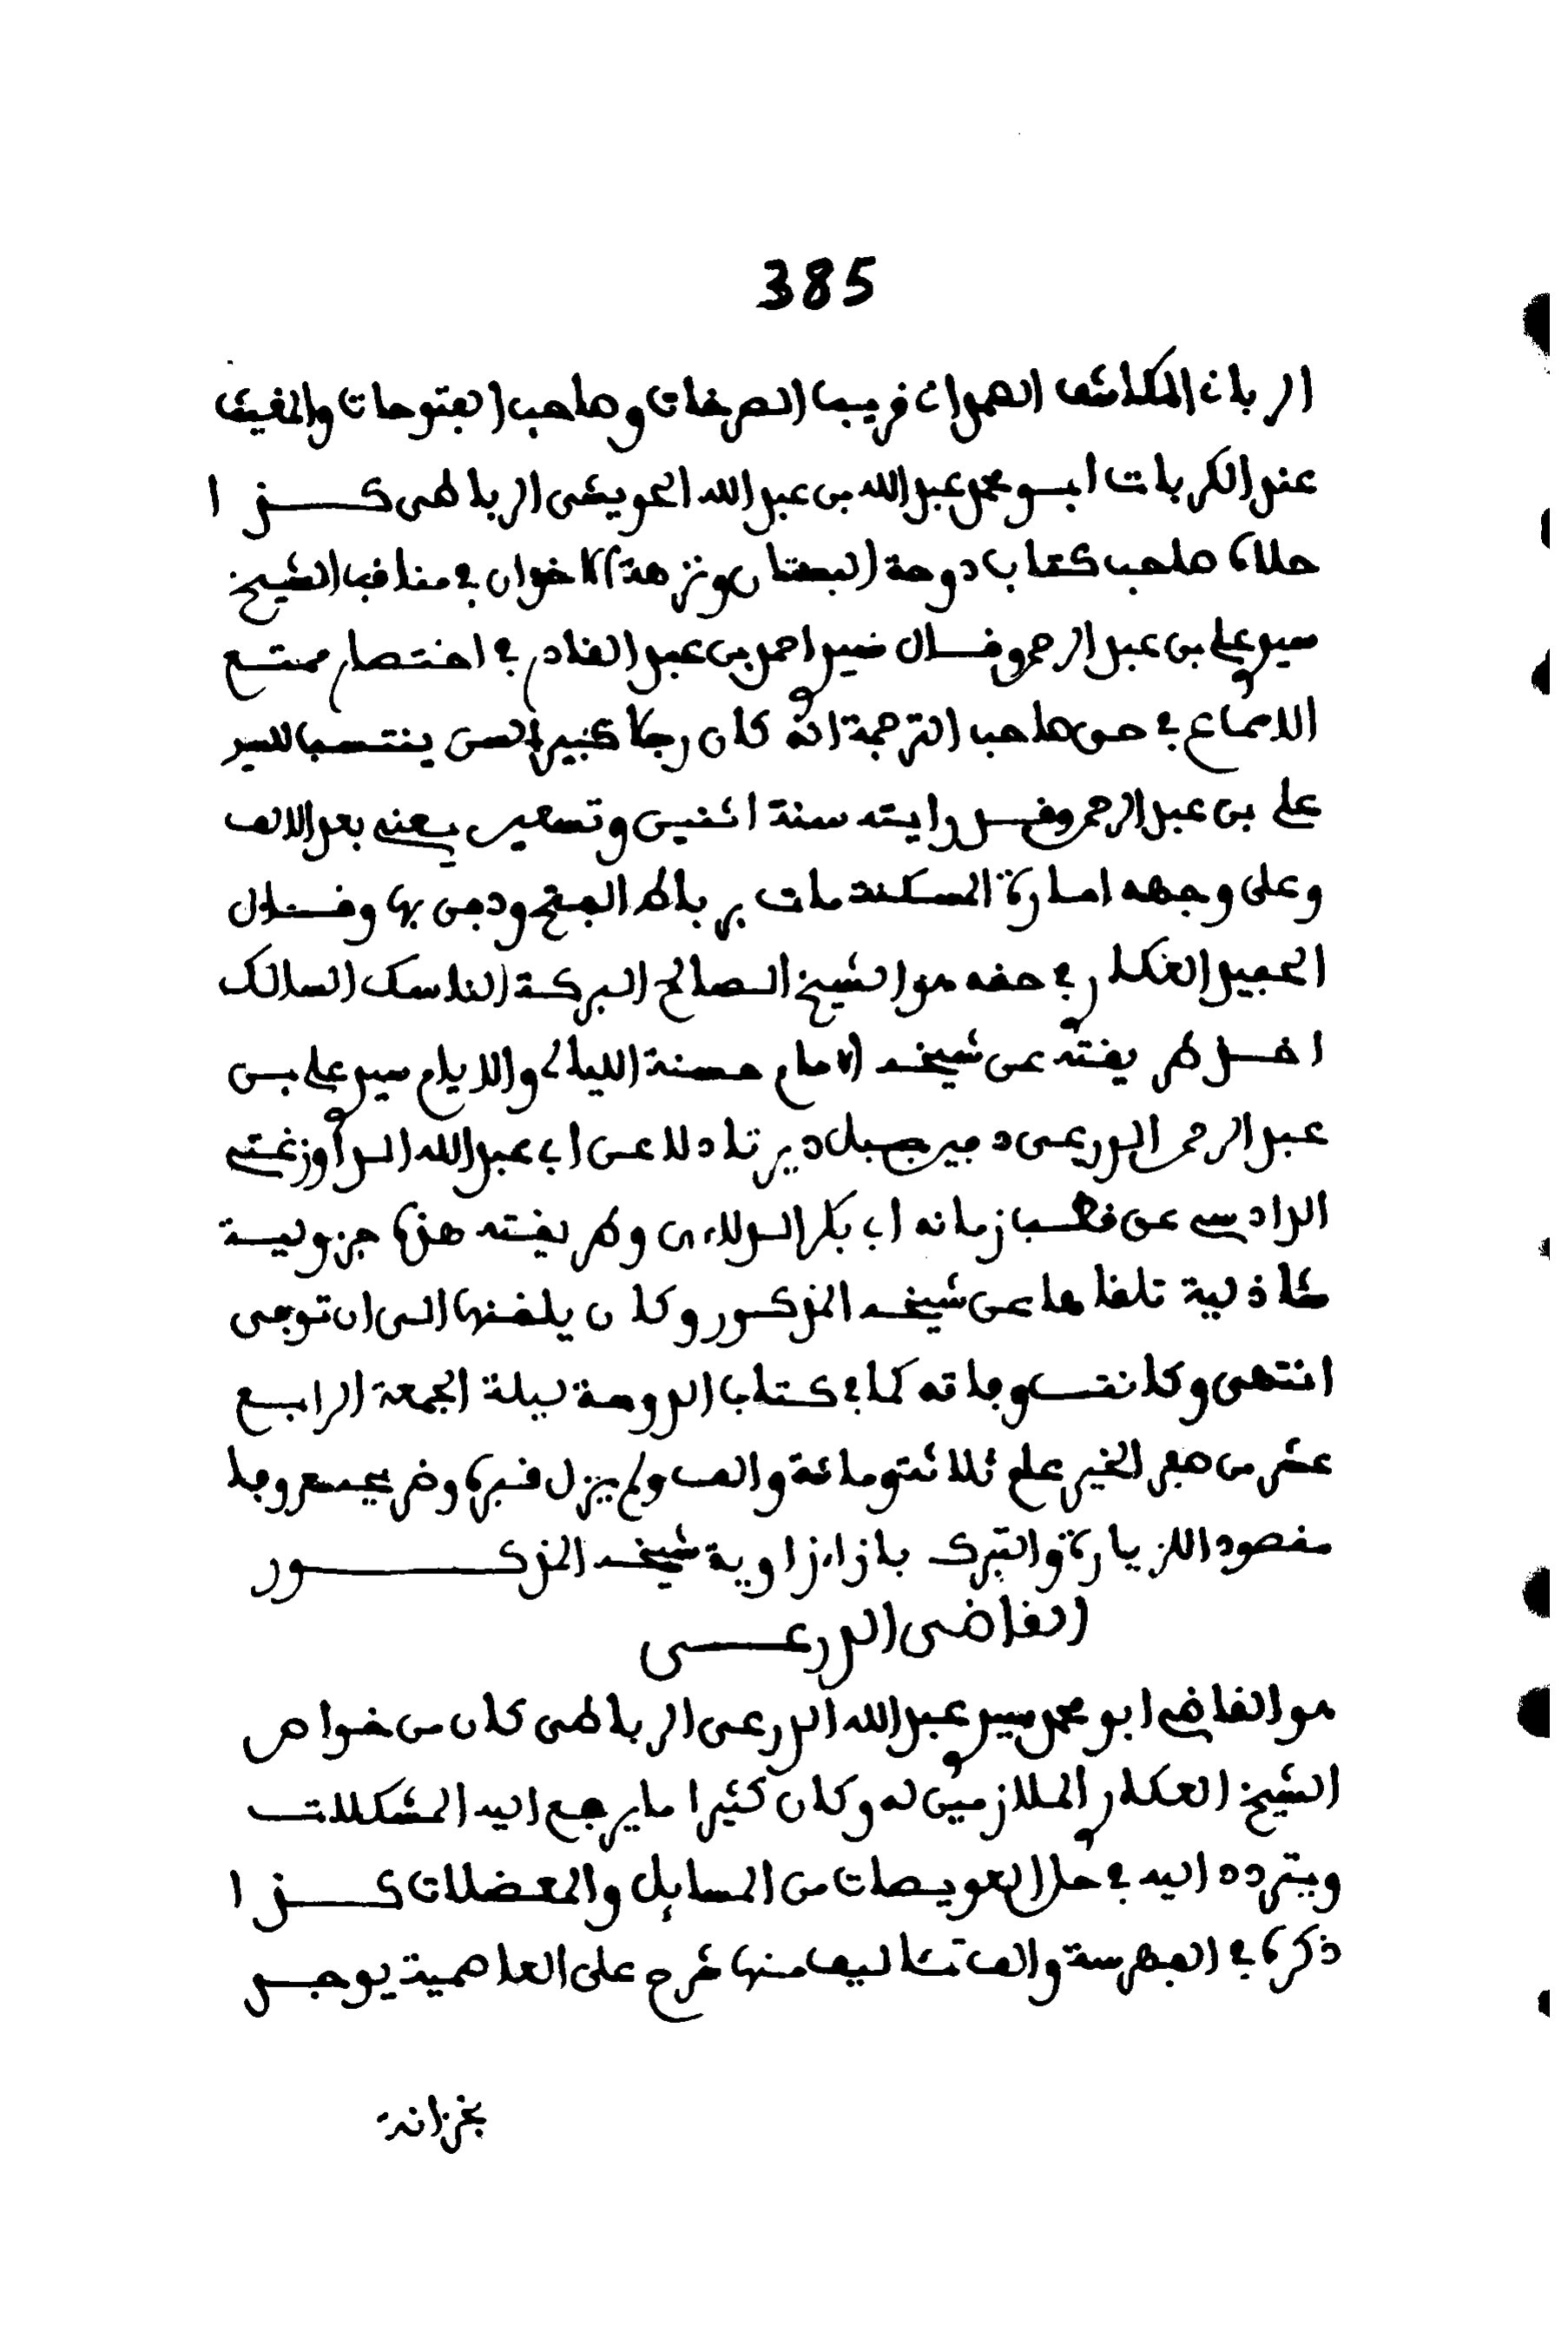 385
الرباني المكاشف الصمداني قريب الصرخات وصاحب الفتوحات والمغيث
عند الكربات ابو محمد عبد الله بن عبد الله الحويشي الرباطي كذا
حلاه صاحب كتاب دوحة البستان ونزهة الاخوان في مناقب الشيخ
سيدي علي بن عبد الرحمن وقال سيدي احمد بن عبد القادر في اختصار ممتع
الاسماع في حق صاحب الترجمة انه كان رجلا كبير السن ينتسب للسيد
علي بن عبد الرحمن وقد رايته سنة اثنين وتسعين يعني بعد الالف
وعلى وجهه امارة المسكنة مات برباط الفتح ودفن بها وقال
الحفيد العكار في حقه هو الشيخ الصالح البركة الناسك السالك
اخذ طريقته عن شيخه الامام حسنة الليالي والايام سيدي علي بن
عبد الرحمن الدرعي دفين جبل دير تادلا عن ابي عبد الله الدراوزغتي
الرادسي عن قطب زمانه ابي بكر الدلاءي وطريقته هذه جزولية
شاذلية تلقاها عن شيخه المذكور وكان يلقنها الى ان توفي
انتهى وكانت وفاته كما في كتاب الدوحة ليلة الجمعة الرابع
عشر من صفر الخير عام ثلاثة ومائة والف ولم يزل قبره وضريحه معروفا
مقصودا للزيارة والتبرك بازاء زاوية شيخه المذكور
القاضي الدرعي
هو القاضي ابو محمد سيدي عبد الله الدرعي الرباطي كان من خواص
الشيخ العكاري الملازمين له وكان كثيرا ما يرجع اليه المشكلات
ويتردد اليه في حل العويصات من المسايل والمعضلات كذا
ذكره في الفهرسة والف تئاليف منها شرح على العاصمية يوجد
بخزانة